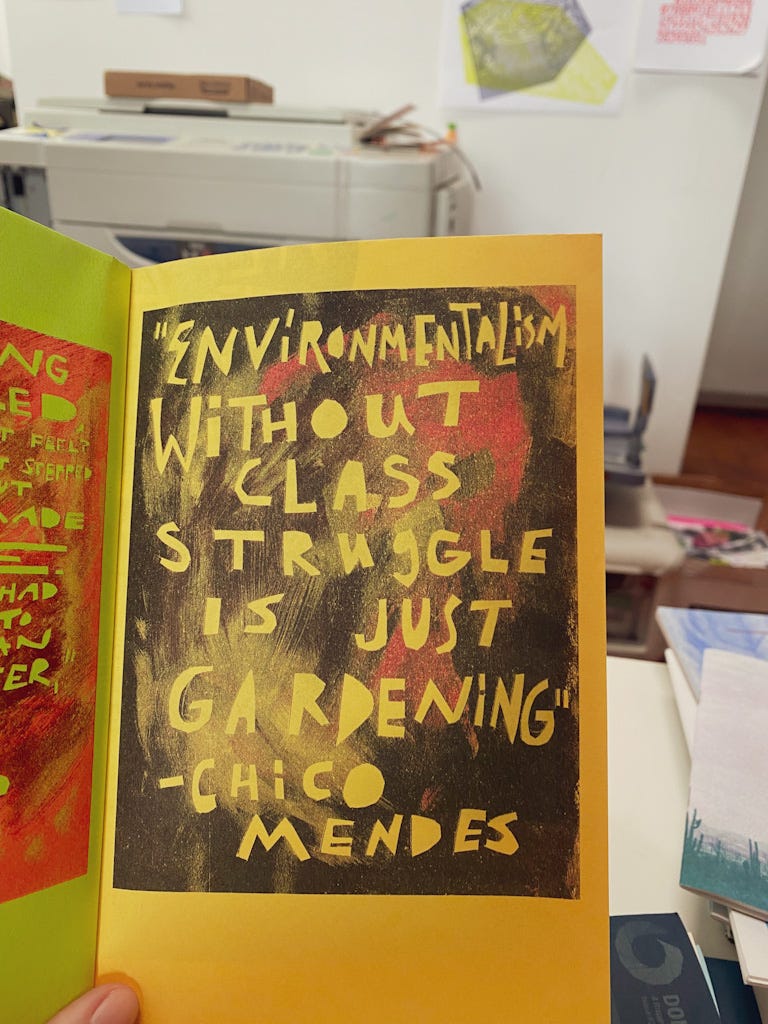 NG
LED
T FEELT
T STEPPED
UT
ADE
HAD
TO
AN
FER,"
"ENViRONMENTALiSM
WiTHOUT
CLASS
STRugGLE
IS JUST
GARDENiNG"
-CHiCO
MENDES
DO